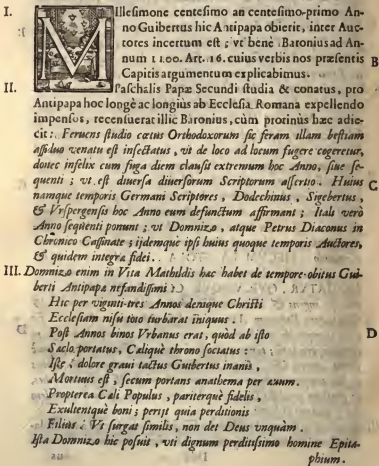 I. Illesimone centesimo an centesimo-primo An-
no Guibertus hic Antipapa obierit, inter Auc-
tores incertum est; vt benè Baronius ad An-
num 1100. Art. 16. cuius verbis nos præsentis B
Capitis argumentum explicabimus.
II. Paschalis Papæ Secundi studia & conatus, pro
Antipapa hoc longè ac longiùs ab Ecclesia Romana expellendo
impensos, recensuerat illic Baronius, cùm protinùs hæc adie-
cit: Feruens studio cœtus Orthodoxorum sic feram illam bestiam
assiduo venatu est insectatus, vt de loco ad locum fugere cogeretur,
donec infelix cum fuga diem clausit extremum hoc Anno, siue se-
quenti; vt est diuersa diuersorum Scriptorum assertio. Huius C
namque temporis Germani Scriptores, Dodechinus, Sigebertus,
& Vrspergensis hoc Anno eum defunctum affirmant; Itali verò
Anno sequenti ponunt; vt Domnizo, atque Petrus Diaconus in
Chronico Cassinate; ijdemque ipsi huius quoque temporis Auctores,
& quidem integra fidei.
III. Domnizo enim in Vita Mathildis hæc habet de tempore obitus Gui-
berti Antipapæ nefandissimi
Hic per viginti-tres Annos denique Christi
Ecclesiam nisu toto turbarat iniquus.
Post Annos binos Vrbanus erat, quòd ab isto D
Sæclo portatus, Calique throno sociatus:
Iste, dolore graui tactus Guibertus inanis,
Mortuus est, secum portans anathema per æuum.
Propterea Cali Populus, pariterque fidelis,
Exultentque boni; perijt quia perditionis
Filius: Vt surgat similis, non det Deus vnquàm.
Ista Domnizo hic posuit, vti dignum perditissimo homine Epita-
phium.